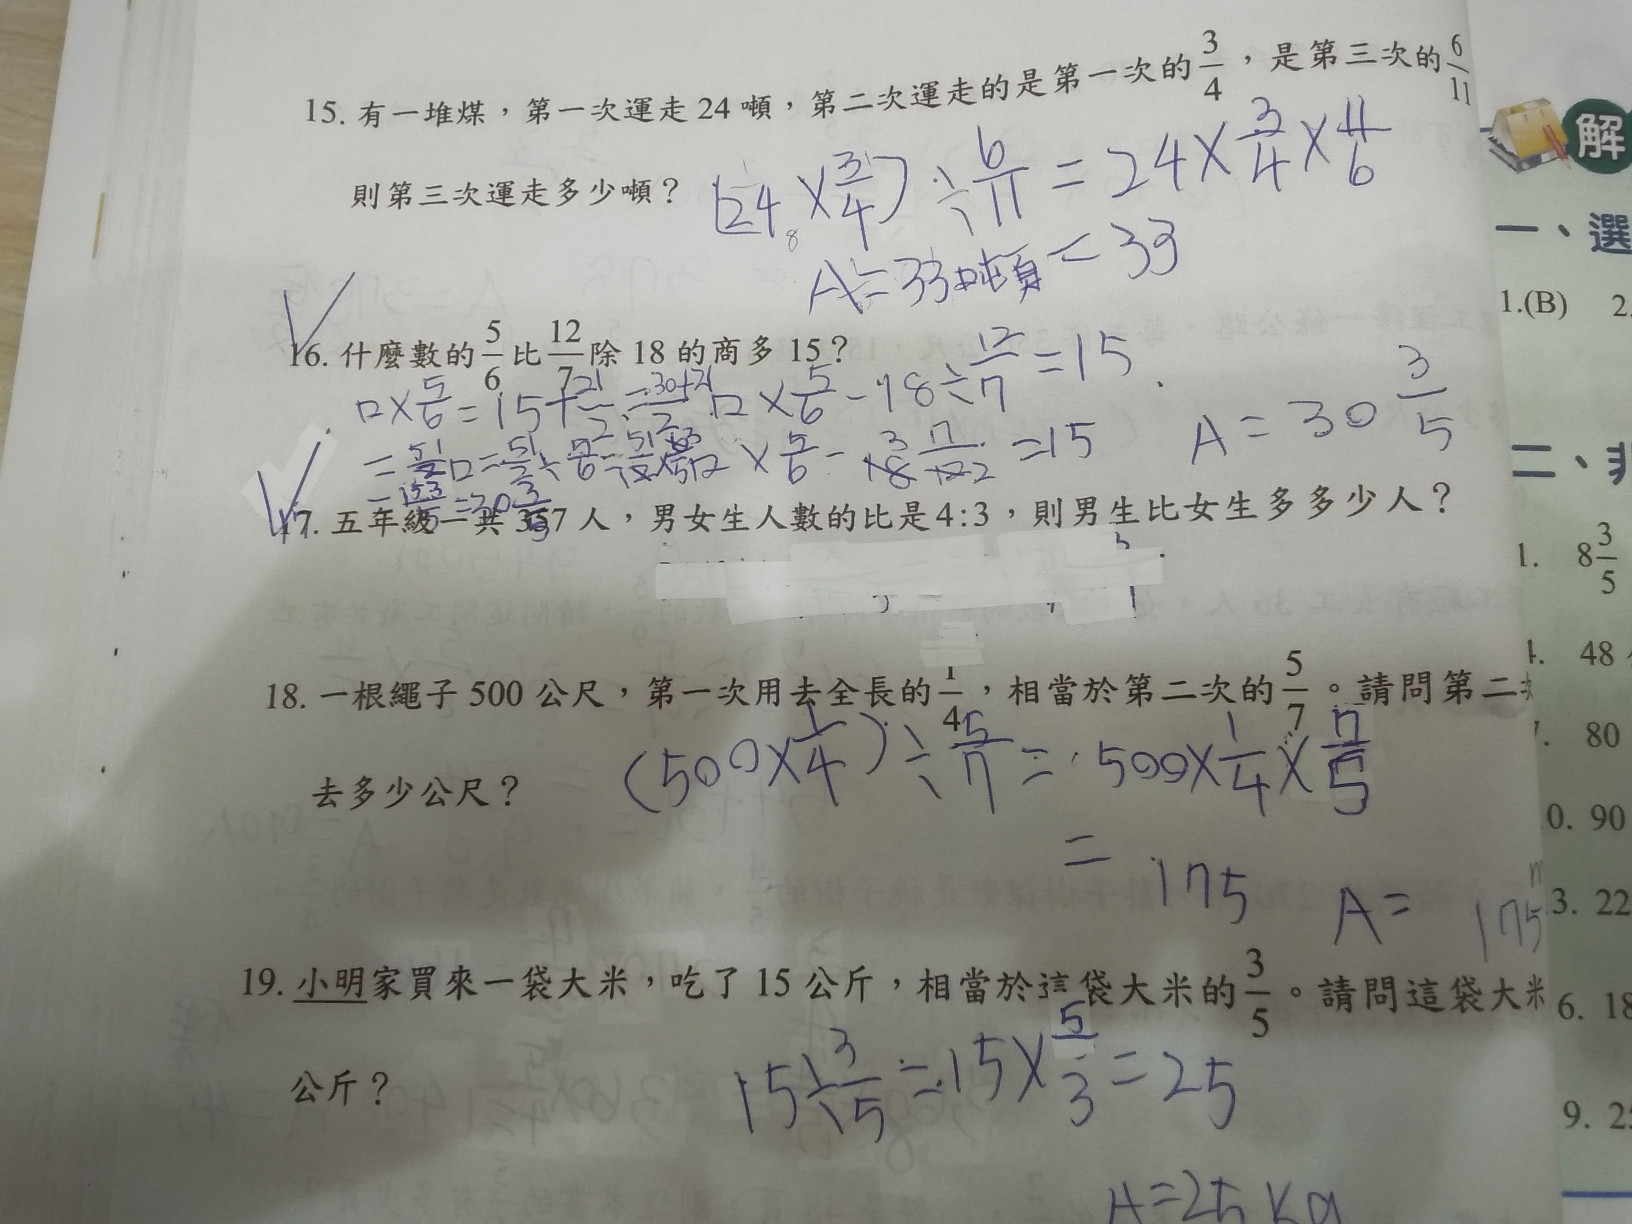 15. 有一堆煤，第一次運走 24 噸，第二次運走的是第一次的 3/4，是第三次的 6/11
則第三次運走多少噸？
(24 × 3/4) ÷ 6/11 = 24 × 3/4 × 11/6
= 33
A = 33 噸
16. 什麼數的 5/6 比 12/7 除 18 的商多 15？
□ × 5/6 − 18 ÷ 12/7 = 15
□ × 5/6 = 15 + 21/2 = 30+21/2
□ × 5/6 − 18 7/12 = 15
= 51/2 □ = 51/2 ÷ 5/6
= 153/5 = 30 3/5
A = 30 3/5
17. 五年級一共 357 人，男女生人數的比是 4:3，則男生比女生多多少人？
18. 一根繩子 500 公尺，第一次用去全長的 1/4，相當於第二次的 5/7。請問第二
去多少公尺？
(500 × 1/4) ÷ 5/7 = 500 × 1/4 × 7/5
= 175
A = 175
19. 小明家買來一袋大米，吃了 15 公斤，相當於這袋大米的 3/5。請問這袋大米
公斤？
15 ÷ 3/5 = 15 × 5/3 = 25
A = 25 kg
解
一、選
1.(B) 2.
二、非
1. 8 3/5
4. 48
7. 80
0. 90
3. 22
6. 18
9. 25